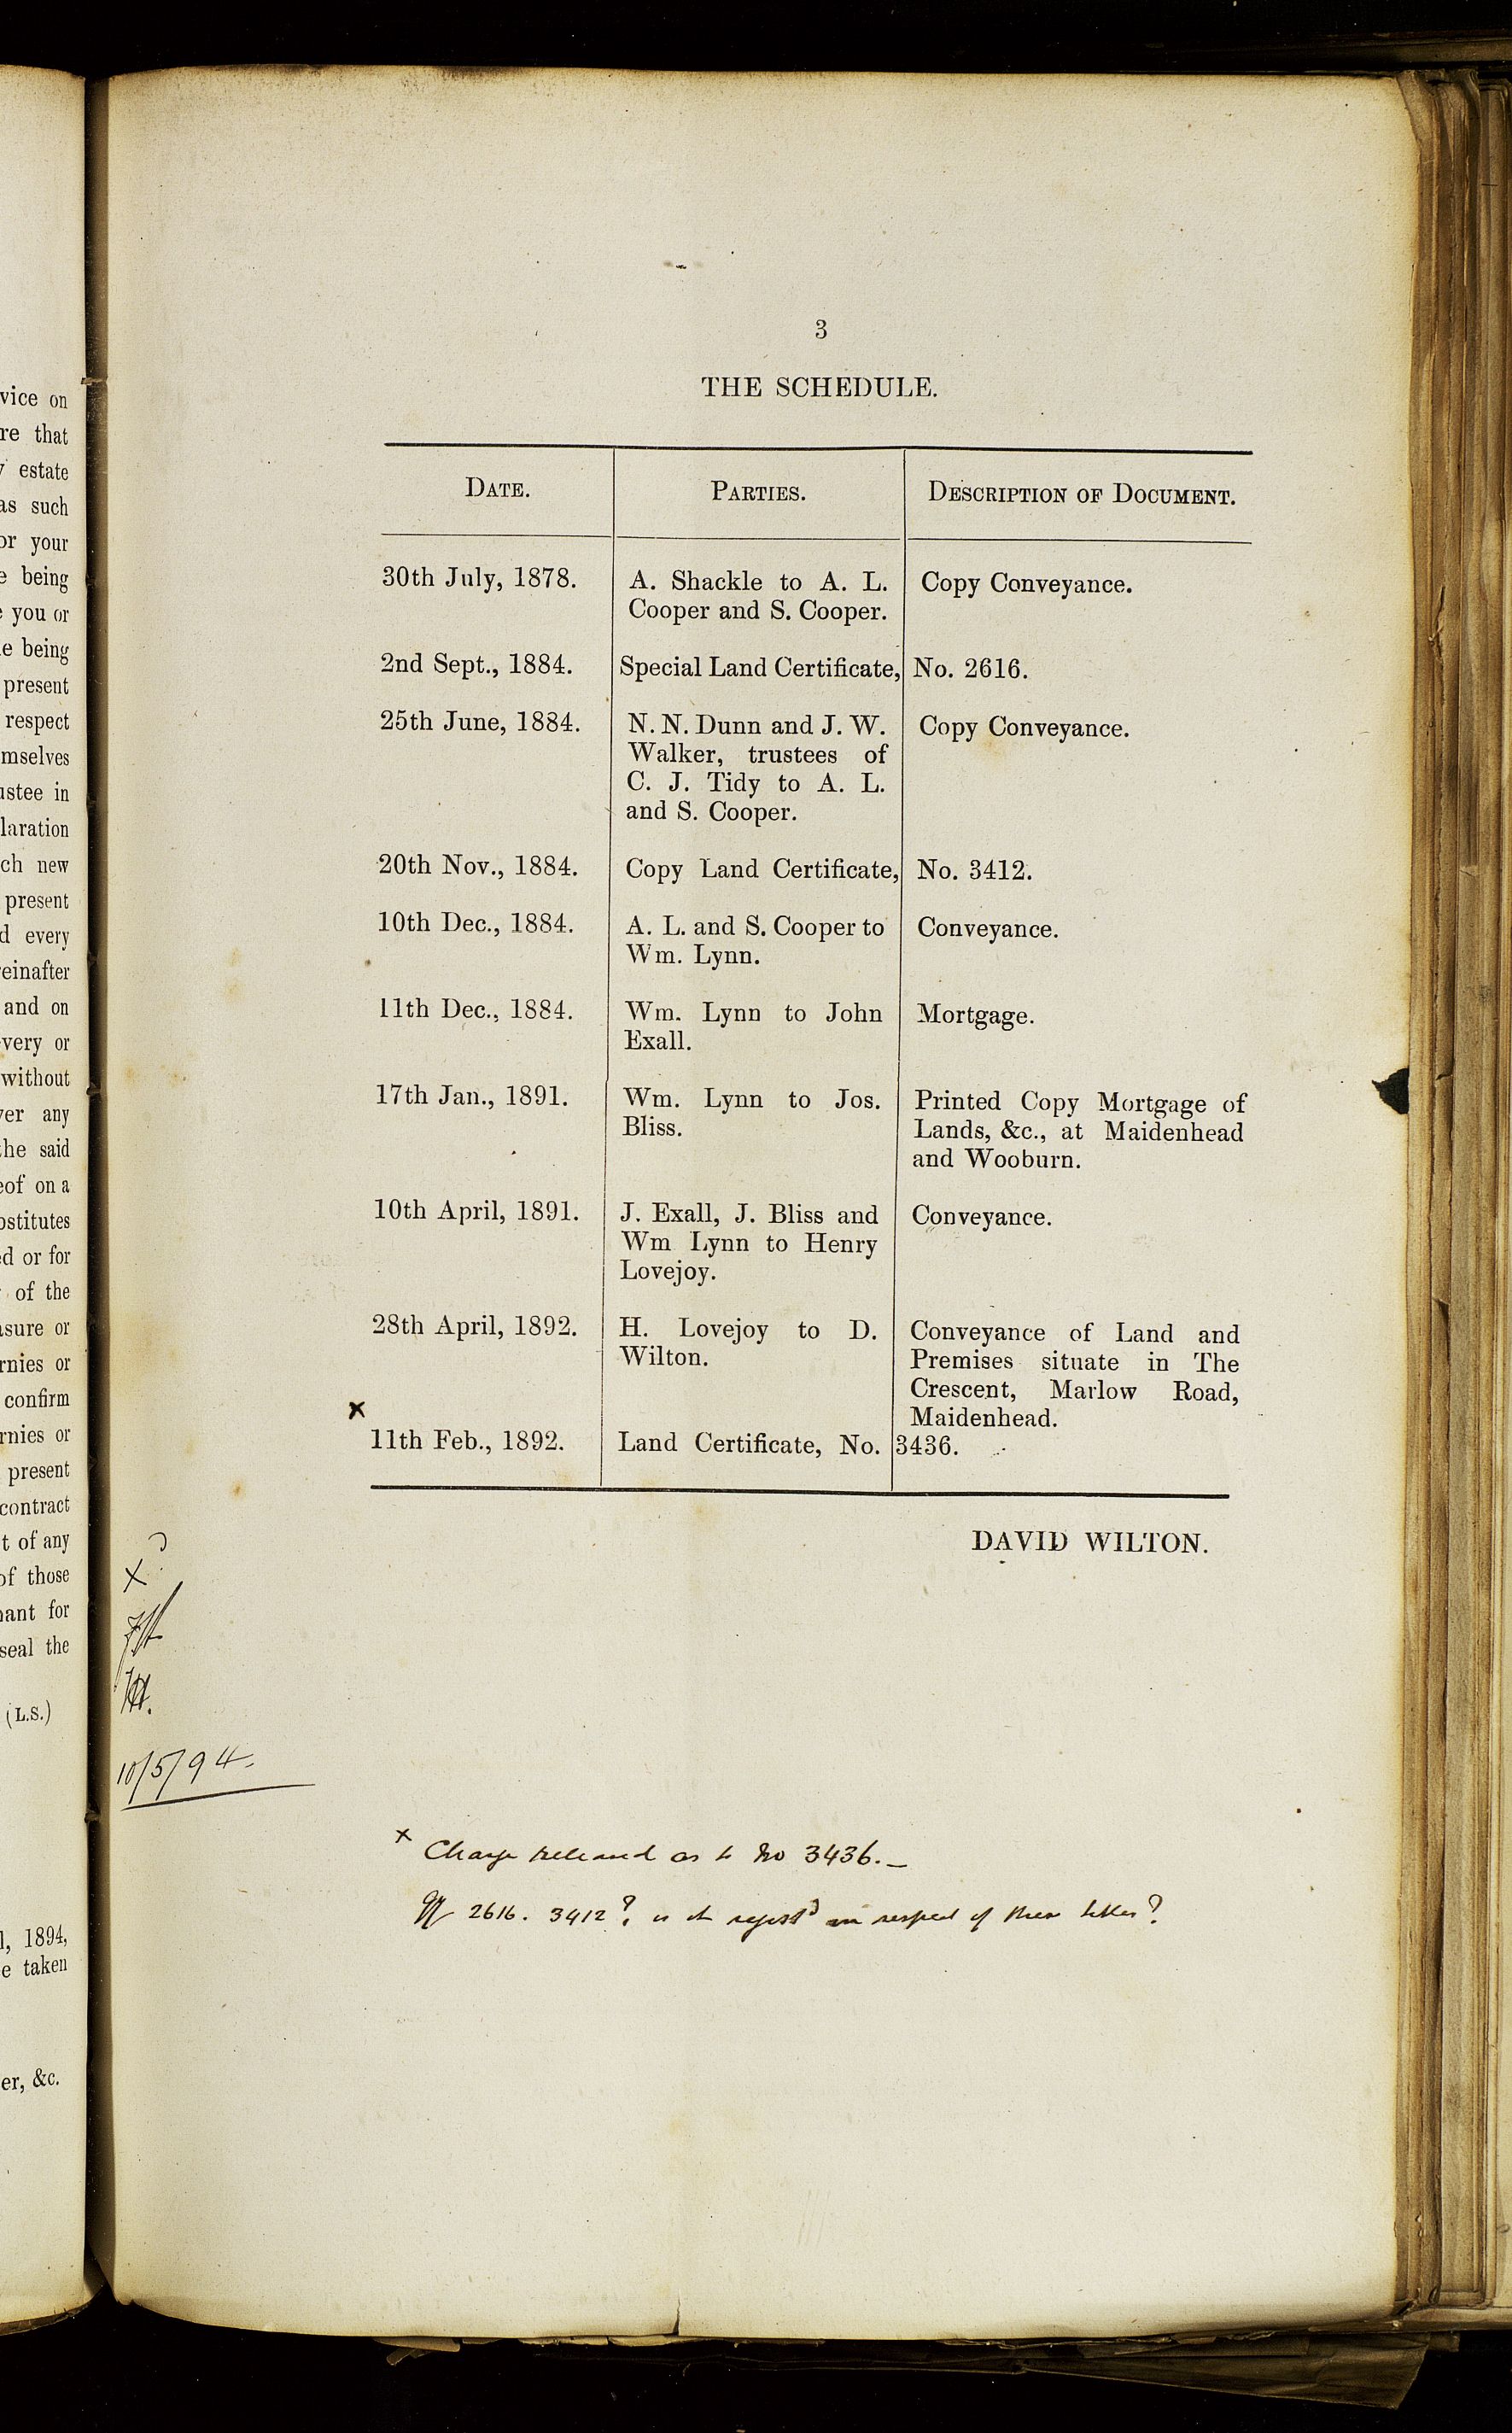 vice on
re that
estate
as such
or your
e being
you or
e being
present
respect
mselves
ustee in
laration
ch new
present
d every
reinafter
and on
very or
without
ver any
the said
eof on a
ostitutes
ed or for
of the
asure or
rnies or
confirm
rnies or
present
contract
t of any
of those
nant for
seal the
(L.S.)
l, 1894,
e taken
er, &c.
3
THE SCHEDULE.
DATE. PARTIES. DESCRIPTION OF DOCUMENT.
30th July, 1878. A. Shackle to A. L. Copy Conveyance.
Cooper and S. Cooper.
2nd Sept., 1884. Special Land Certificate, No. 2616.
25th June, 1884. N. N. Dunn and J. W. Copy Conveyance.
Walker, trustees of
C. J. Tidy to A. L.
and S. Cooper.
20th Nov., 1884. Copy Land Certificate, No. 3412.
10th Dec., 1884. A. L. and S. Cooper to Conveyance.
Wm. Lynn.
11th Dec., 1884. Wm. Lynn to John Mortgage.
Exall.
17th Jan., 1891. Wm. Lynn to Jos. Printed Copy Mortgage of
Bliss. Lands, &c., at Maidenhead
and Wooburn.
10th April, 1891. J. Exall, J. Bliss and Conveyance.
Wm Lynn to Henry
Lovejoy.
28th April, 1892. H. Lovejoy to D. Conveyance of Land and
Wilton. Premises situate in The
Crescent, Marlow Road,
Maidenhead.
x
11th Feb., 1892. Land Certificate, No. 3436.
DAVID WILTON.
x
10/5/94.
x Charge released as to No 3436.—
2616. 3412? is it regist'd in respect of these titles?